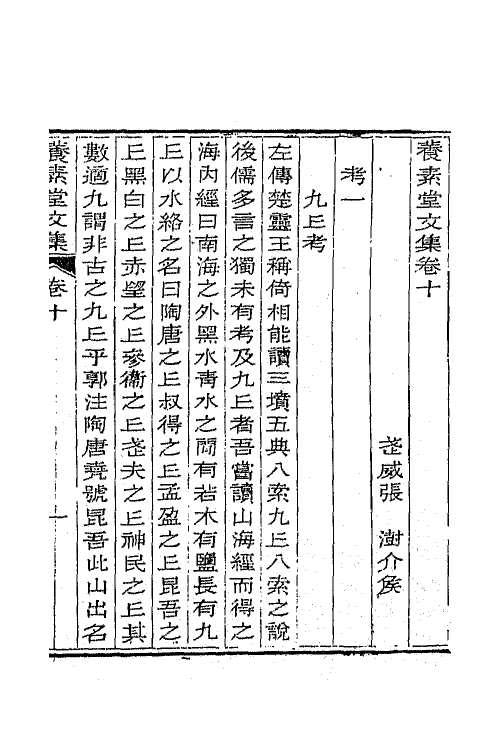 養素堂文集卷十
武威張 澍介侯
考一
九丘考
左傳楚靈王稱倚相能讀三墳五典八索九丘八索之說
後儒多言之獨未有考及九丘者吾嘗讀山海經而得之
海內經曰南海之外黑水青水之閒有若木有鹽長有九
丘以水絡之名曰陶唐之丘叔得之丘孟盈之丘昆吾之
丘黑白之丘赤望之丘參衞之丘武夫之丘神民之丘其
數適九謂非古之九丘乎郭注陶唐堯號昆吾此山出名
養素堂文集 卷十 一